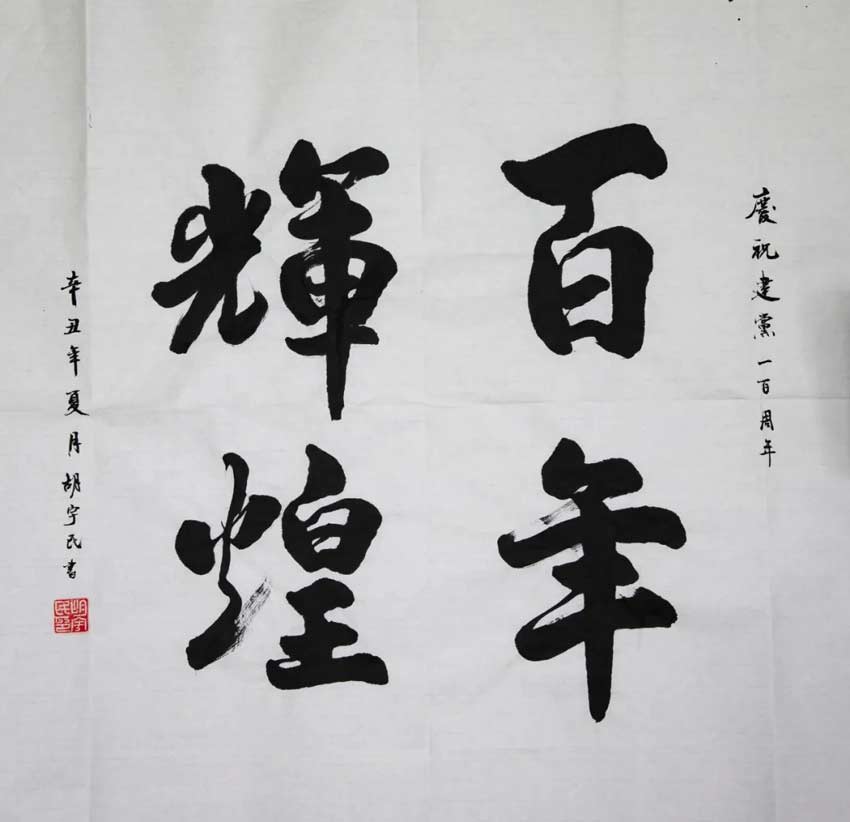 慶祝建黨一百周年
百年
輝煌
辛丑年夏月胡宇民書
胡宇
民印